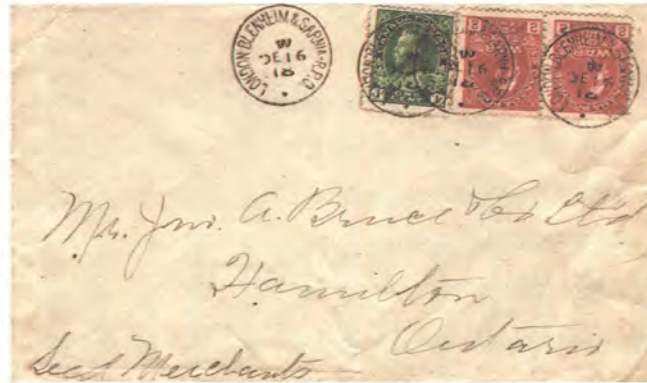 LONDON·BLENHEIM & SARNIA·R.P.O.
W
DE 16
18
W
DE 16
18
LONDON·BLENHEIM & SARNIA·R.P.O.
W
DE 16
18
2 2
2 2
Mr. Jno. A. Bruce & Co Ltd
Hamilton
Ontario
Seed Merchants